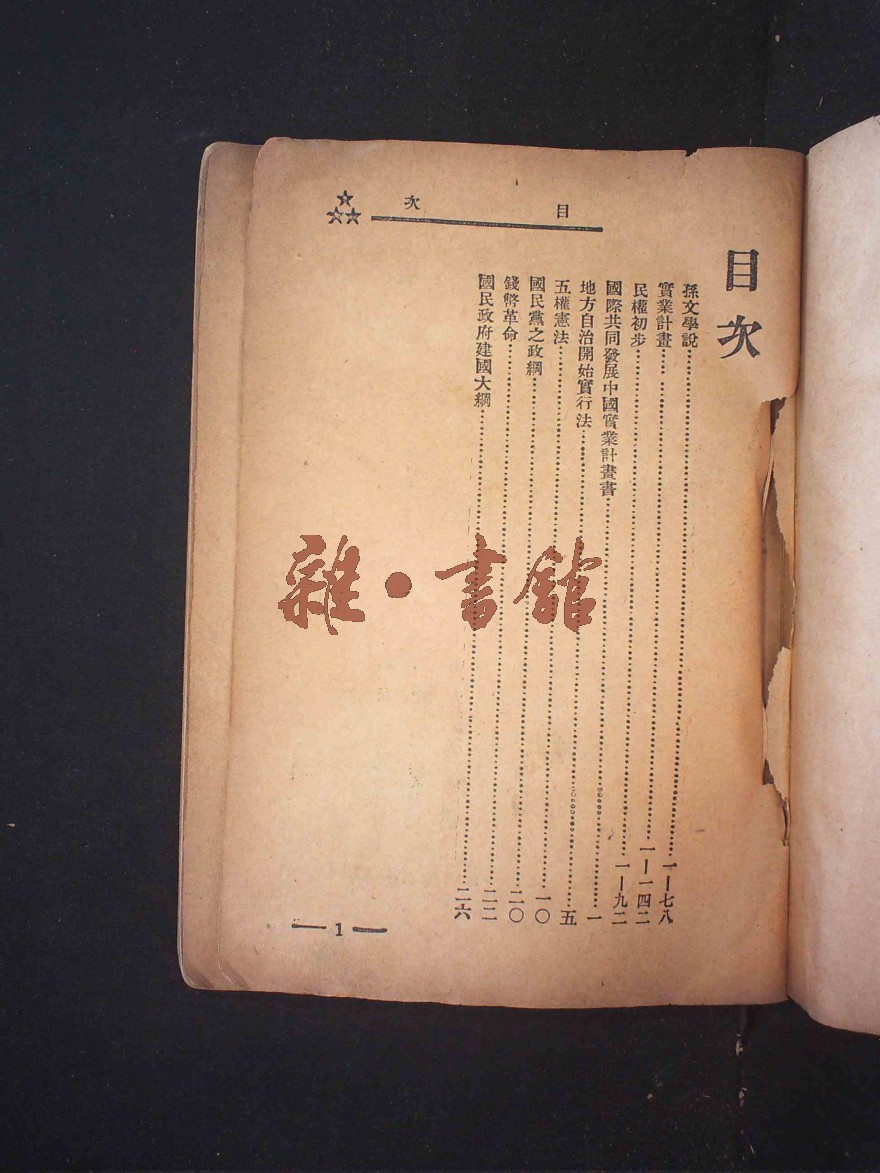 目次
目次
孫文學說 一—七八
實業計畫 一—一四二
民權初步 一—九二
國際共同發展中國實業計畫書 一
地方自治開始實行法 五
五權憲法 一〇
國民黨之政綱 二〇
錢幣革命 二二
國民政府建國大綱 二六
1
雜·書館